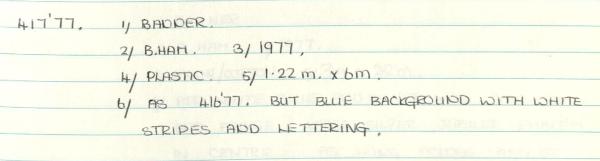 417'77. 1/ BANNER.
2/ B.HAM. 3/ 1977,
4/ PLASTIC. 5/ 1·22 m. x 6m.
6/ AS 416'77. BUT BLUE BACKGROUND WITH WHITE
STRIPES AND LETTERING.